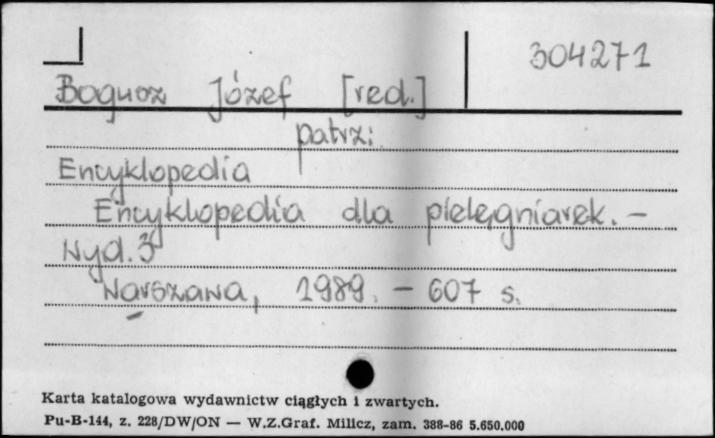 304271
Bogusz Józef [red.]
patrz:
Encyklopedia
Encyklopedia dla pielęgniarek. -
Wyd. 3
Warszawa, 1989. - 607 s.
Karta katalogowa wydawnictw ciągłych i zwartych.
Pu-B-144, z. 228/DW/ON — W.Z.Graf. Milicz, zam. 388-86 5.650.000